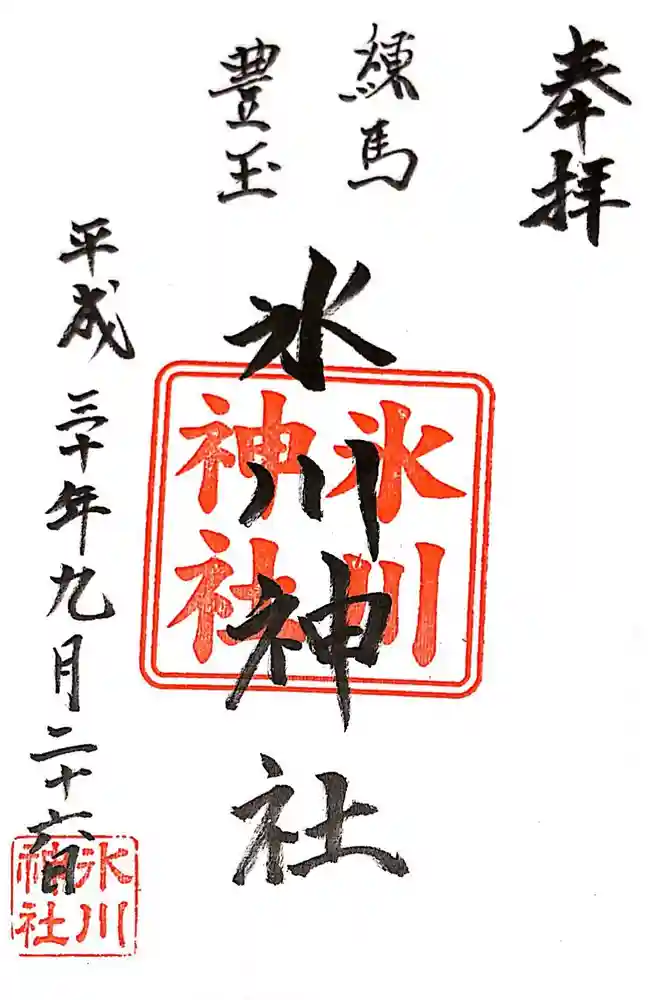 奉拝
練馬
豊玉
氷川神社
平成三十年九月二十六日
氷川神社
氷川神社